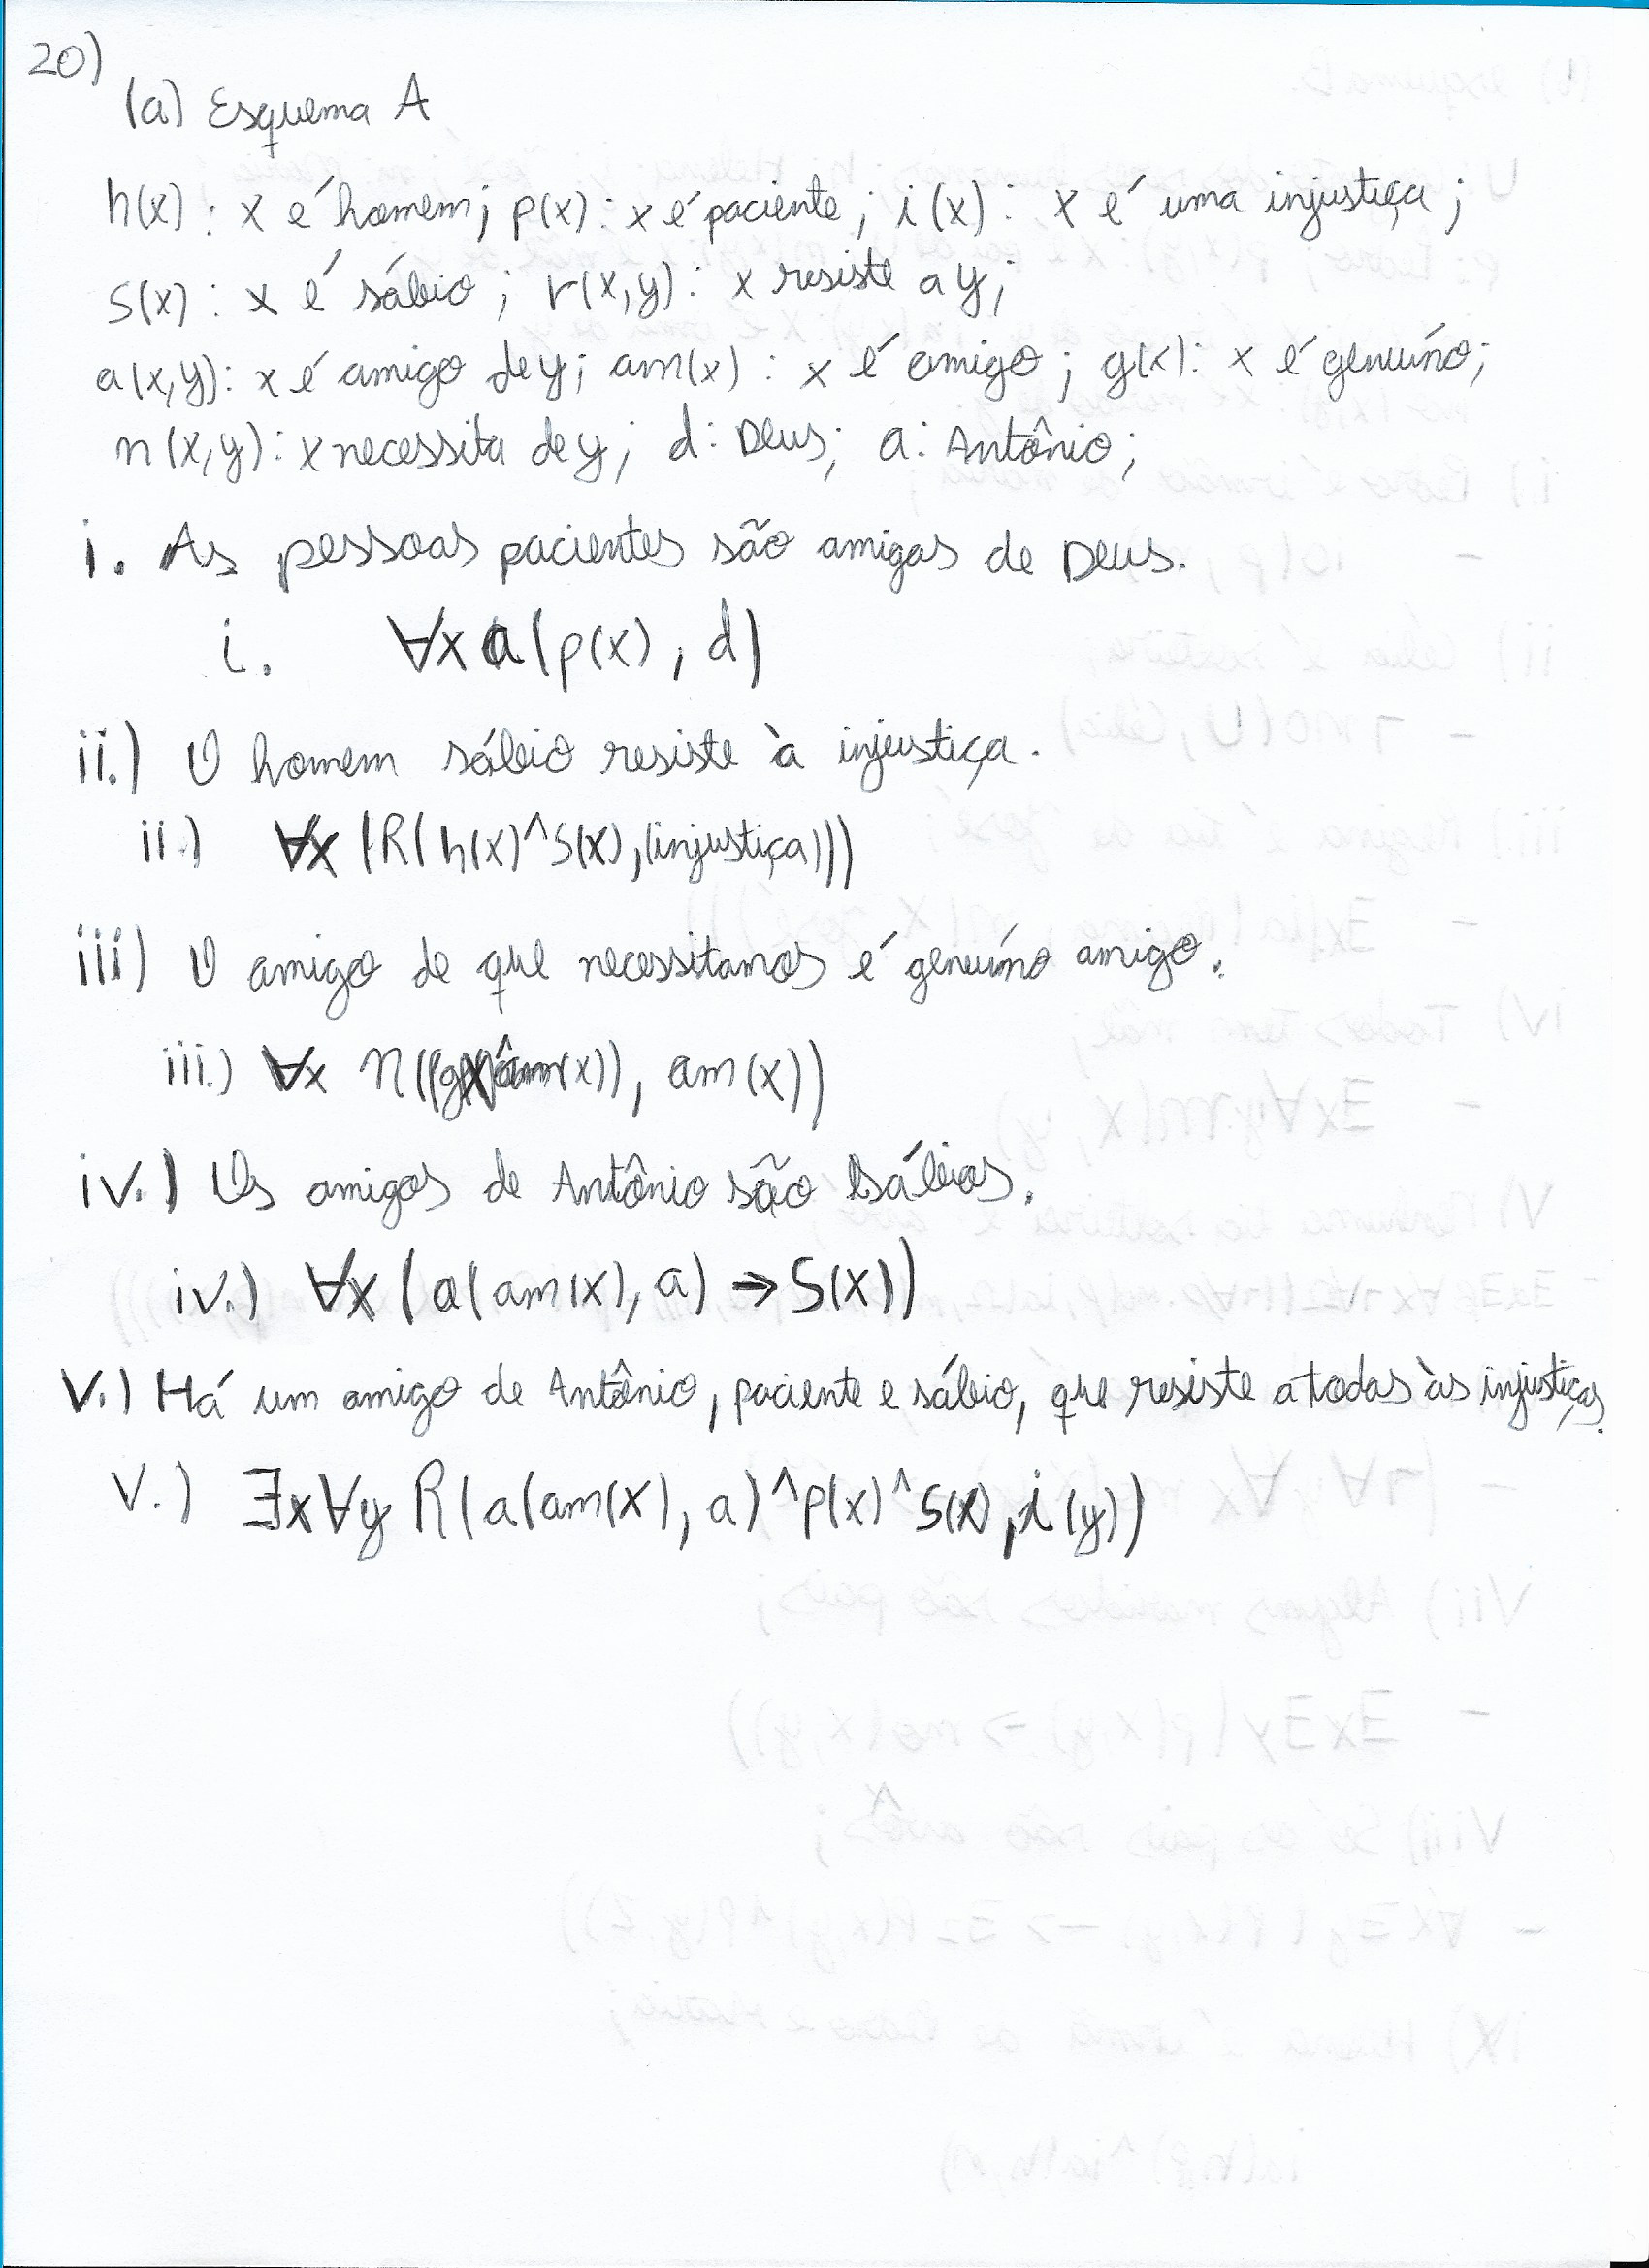 20)
(a) Esquema A
h(x) : x é homem; p(x) : x é paciente; i(x) : x é uma injustiça;
S(x) : x é sábio; r(x,y) : x resiste a y;
a(x,y): x é amigo de y; am(x) : x é amigo; g(x): x é genuíno;
n(x,y): x necessita de y; d: Deus; a: Antônio;
i. As pessoas pacientes são amigas de Deus.
i. ∀x a(p(x), d)
ii.) O homem sábio resiste à injustiça.
ii.) ∀x (R(h(x)^S(x),(injustiça)))
iii) O amigo de que necessitamos é genuíno amigo.
iii.) ∀x n( am(x))
iv.) Os amigos de Antônio são sábios.
iv.) ∀x (a(am(x), a) → S(x))
V.) Há um amigo de Antônio, paciente e sábio, que resiste a todas às injustiças.
V.) ∃x∀y R(a(am(x), a)^p(x)^S(x), i(y))